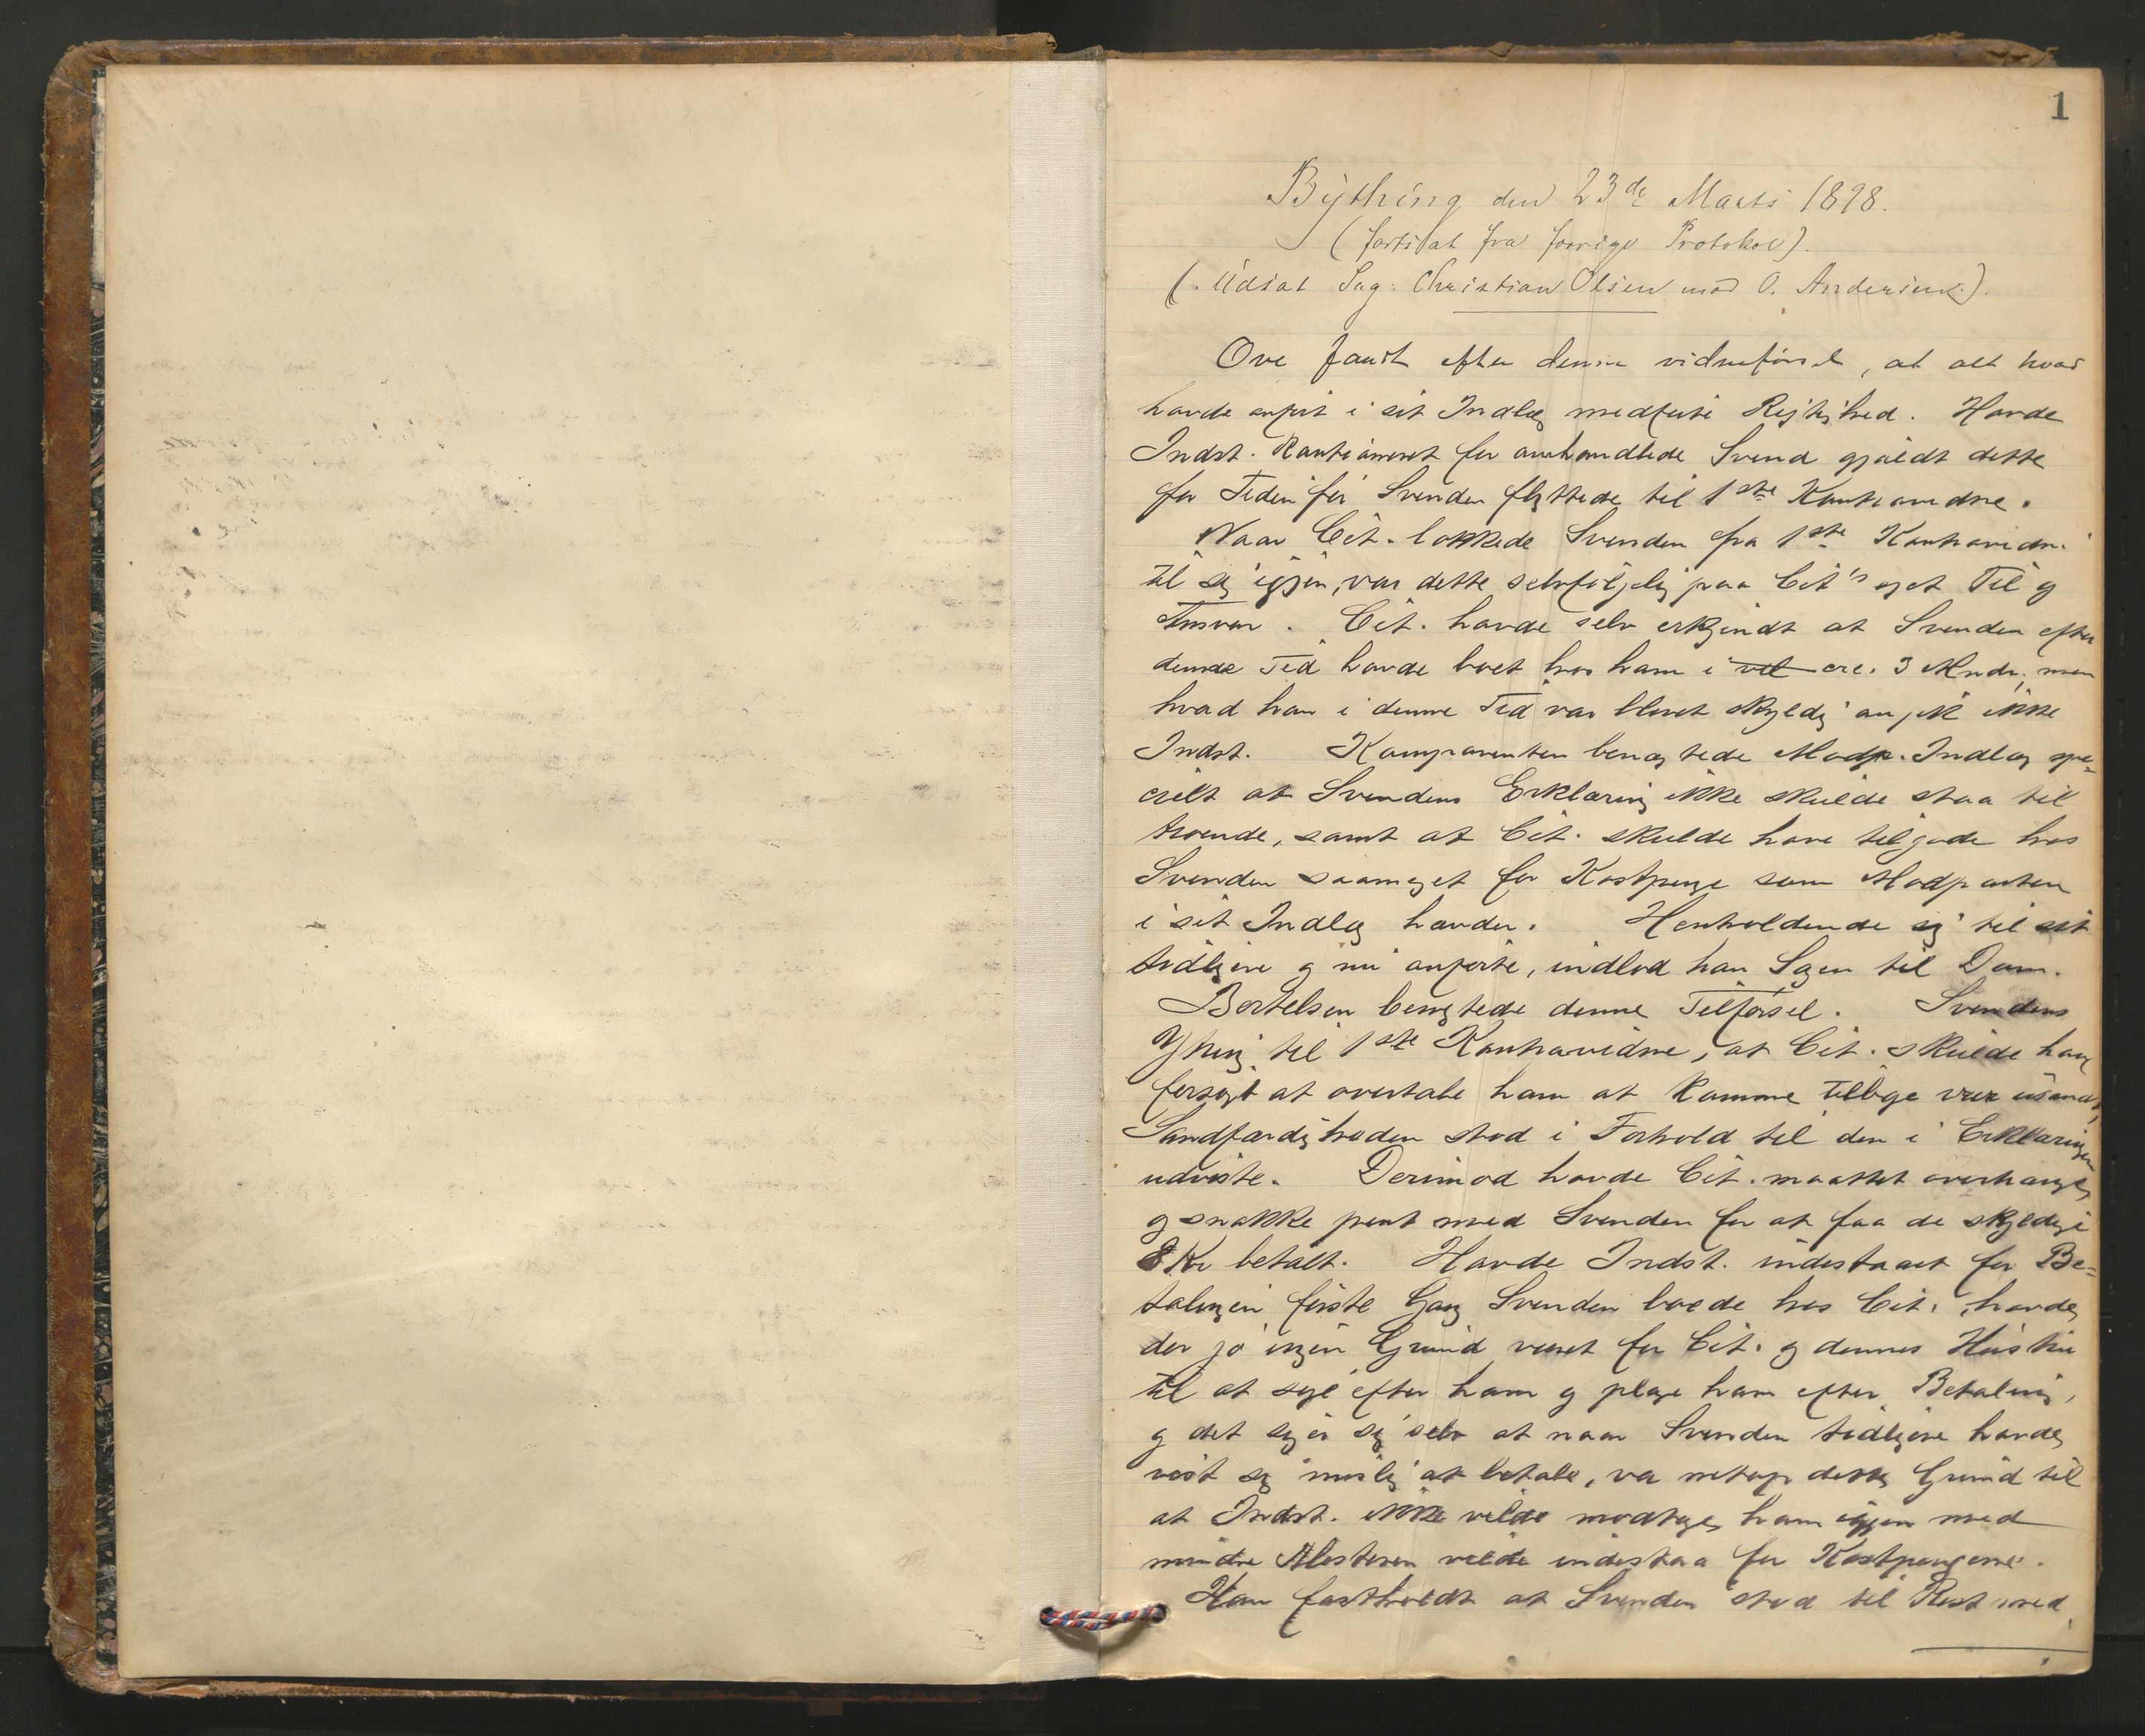 1
Bything den 23de Marts 1898.
(fortsat fra forrige Protokol).
(Udsat Sag: Christian Olsen mod O. Andersen.)
Ove fandt efter denne vidneførsel, at alt hvad
havde anført i sit Indlæg medførte Rigtighed. Havde
Indst. Kautioneret for omhandlede Svend gjaldt dette
for Tiden før Svenden flyttede til 1ste Kontravidne.
Naar Cit. lokkede Svenden fra 1ste Kontravidne
til sig igjen, var dette selvfølgelig paa Cit's eget Til og
Ansvar. Cit. havde selv erkjendt at Svenden efter
denne Tid havde boet hos ham i vel circ. 3 Mndr., men
hvad han i denne Tid var blevet skyldig angik ikke
Indst. Komparenten benægtede Modp. Indlæg spe=
cielt at Svendens Erklæring ikke skulde staa til
troende, samt at Cit. skulde have tilgode hos
Svenden saameget for Kostpenge som Modparten
i sit Indlæg hævder. Henholdende sig til sit
tidligere og nu anførte, indlod han Sagen til Dom.
Bertelsen benægtede denne Tilførsel. Svendens
Ytring til 1ste Kontravidne, at Cit. skulde have
forsøgt at overtale ham at komme tilbage var usandt,
Sandfærdigheden stod i Forhold til den i Erklæringen
udviste. Derimod havde Cit. maattet overhænge
og snakke pent med Svenden for at faa de skyldige
8 Kr betalt. Havde Indst. indestaaet for Be=
talingen første Gang Svenden boede hos Cit., havde
der jo ingen Grund været for Cit. og dennes Hustru
til at søge efter ham og plage ham efter Betaling,
og det siger sig selv at naar Svenden tidligere havde
vist sig uvillig at betale, var netop dette Grund til
at Indst. ikke vilde modtage ham igjen med
mindre Mesteren vilde indestaa for Kostpengene.
Han fastholdt at Svenden stod til Rest med